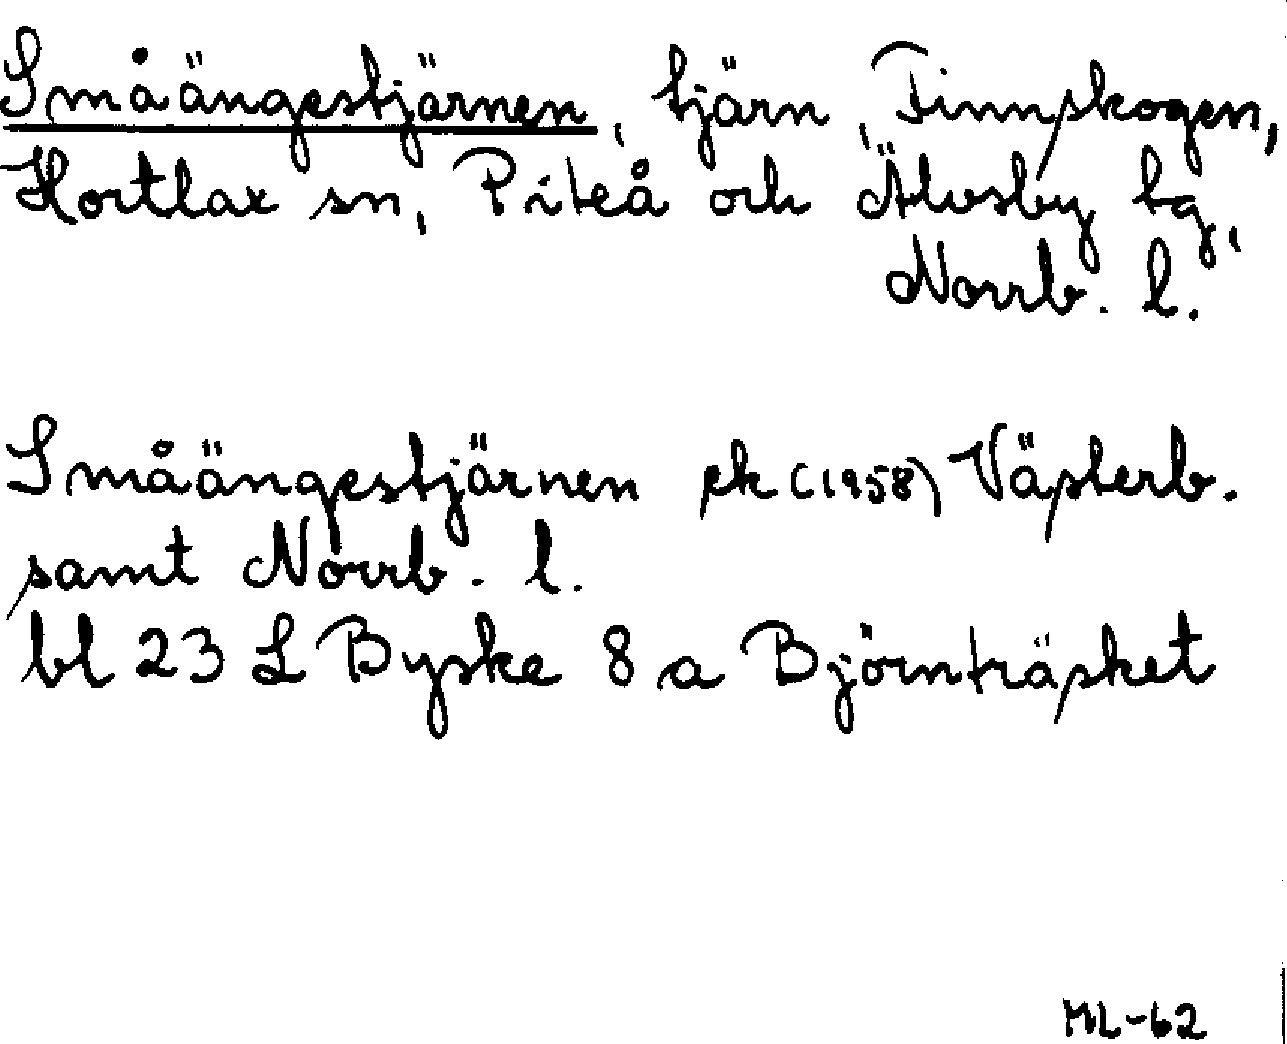 Småängestjärnen, tjärn, Finnskogen,
Hortlax sn, Piteå och Älvsby tg,
Norrb. l.
Småängestjärnen ek (1958) Västerb.
samt Norrb. l.
bl 23 L Byske 8 a Björnträsket
ML-62